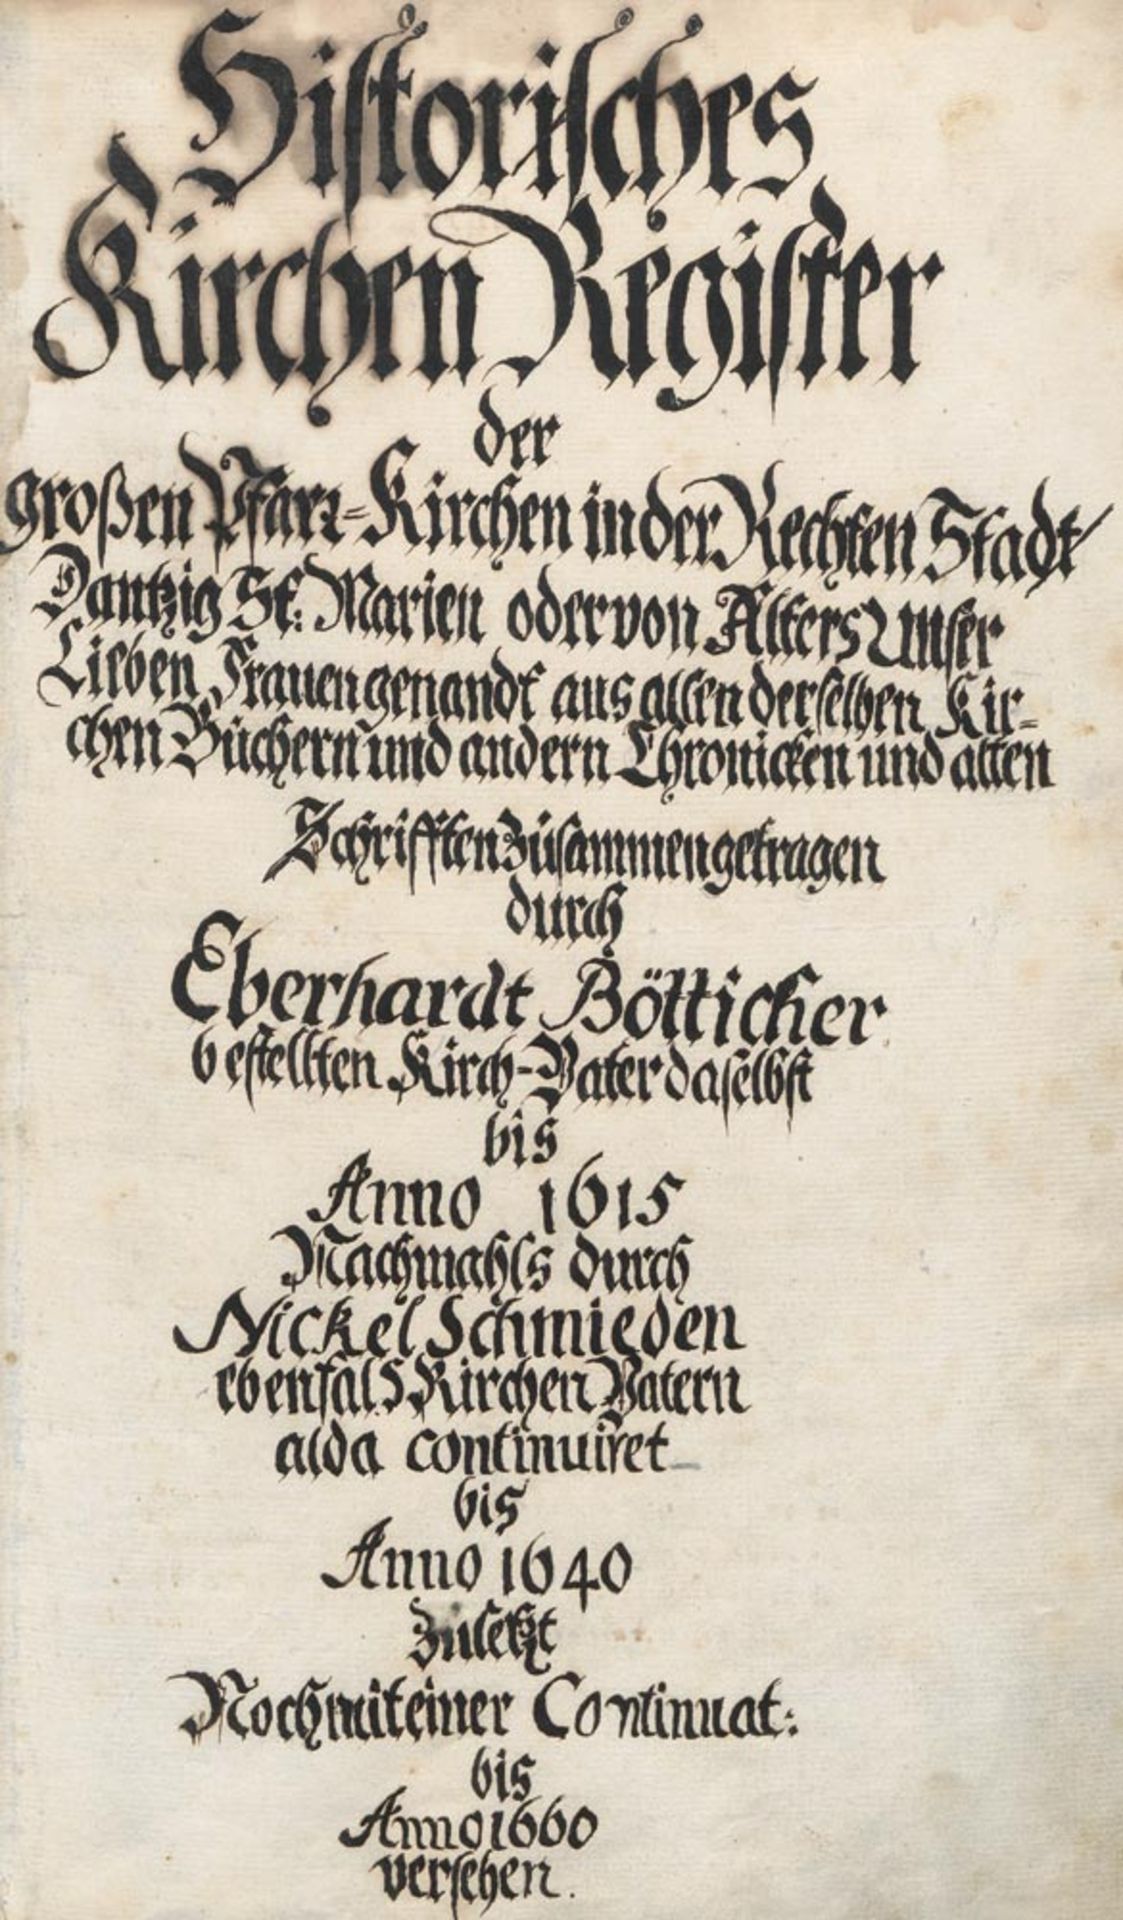 Historisches
Kirchen Register
der
großen Pfarr-Kirchen in der Rechten Stadt
Dantzig St: Marien oder von Alters Unser
Lieben Frauen genandt aus allen derselben Kir=
chen Büchern und andern Chronicken und alten
Schrifften zusammen getragen
durch
Eberhardt Bötticher
bestellten Kirch-Vater daselbst
bis
Anno 1615
Nachmahls durch
Nickel Schmieden
ebenfals Kirchen Vatern
alda continuiret
bis
Anno 1640
Zuletzt
Noch mit einer Continuat:
bis
Anno 1660
versehen.